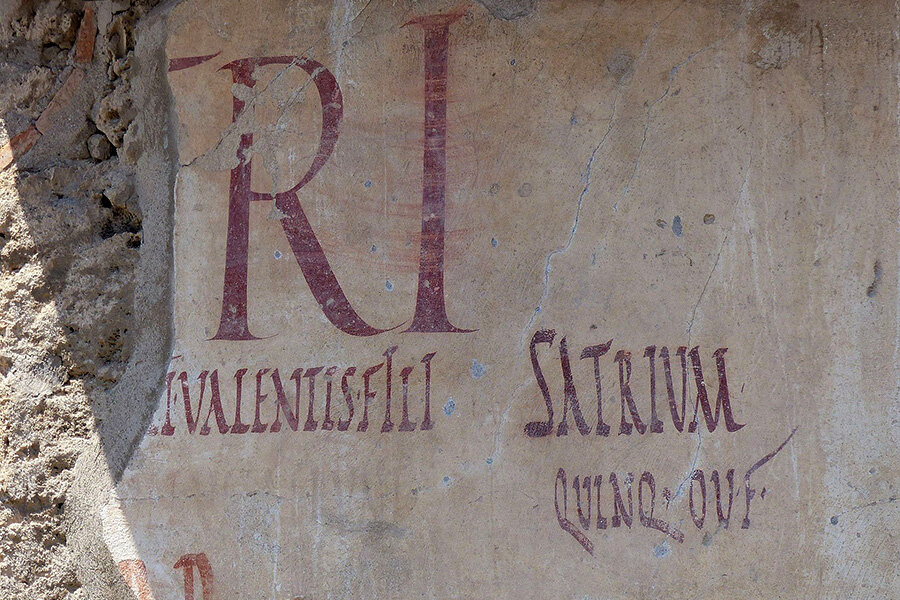 RI
VALENTIS·FILI
SATRIUM
QUINQ· OV·F·